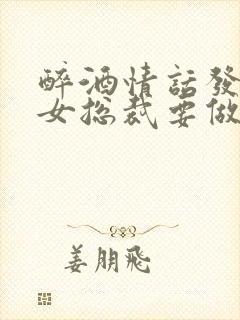 醉酒情話發
女总裁要做
姜朋飛